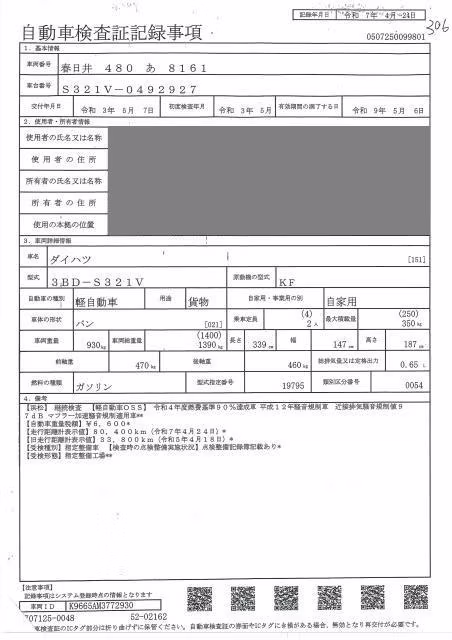 記録年月日 令和 7年 4月 24日
306
自動車検査証記録事項
0507250099801
1．基本情報
車両番号 春日井 480 あ 8161
車台番号 S321V-0492927
交付年月日 令和 3年 5月 7日 初度検査年月 令和 3年 5月 有効期間の満了する日 令和 9年 5月 6日
2．使用者・所有者情報
使用者の氏名又は名称
使用者の住所
所有者の氏名又は名称
所有者の住所
使用の本拠の位置
3．車両詳細情報
車名 ダイハツ [151]
型式 3BD-S321V 原動機の型式 KF
自動車の種別 軽自動車 用途 貨物 自家用・事業用の別 自家用
車体の形状 バン [021] 乗車定員 (4) 2人 最大積載量 (250) 350kg
車両重量 930kg 車両総重量 (1400) 1390kg 長さ 339cm 幅 147cm 高さ 187cm
前軸重 470kg 後軸重 460kg 総排気量又は定格出力 0.65L
燃料の種類 ガソリン 型式指定番号 19795 類別区分番号 0054
4．備考
【浜松】 継続検査 【軽自動車OSS】 令和4年度燃費基準90％達成車 平成12年騒音規制車 近接排気騒音規制値9
7dB マフラー加速騒音規制適用車**
【自動車重量税額】¥6,600*
【走行距離計表示値】80,400km（令和7年4月24日）*
【旧走行距離計表示値】33,800km（令和5年4月18日）*
【受検種別】指定整備車 【検査時の点検整備実施状況】点検整備記録簿記載あり*
【受検形態】指定整備工場**
【注意事項】
記録事項はシステム登録時点の情報となります
車両ID K9665AM3772930
707125-0048 52-02162
車検査証のICタグ部分は折り曲げずに保管ください。自動車検査証の券面やICタグに古損がある場合、無効となり再交付が必要です。